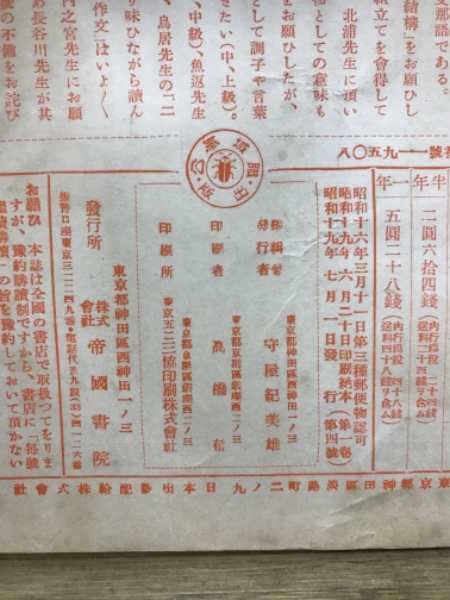 支那語である。
結構」をお願ひし
組立てを會得して
北浦先生に頂い
物としての意味も
をお願ひしたが、
として調子や言葉
きたい(中、上級)。
、中級)、魚返先生
、鳥居先生の「二
り味ひながら讀ん
作文」はいよ〳〵
内之宮先生にお願
め長谷川先生が其
號の不備をお詫び
號一一九五〇八
半年
二圓六拾四錢
一年
五圓二十八錢
出版
昭和十六年三月十一日第三種郵便物認可
昭和十九年 六月二十日印刷納本(第一卷)
昭和十九年 七月一日發行(第四號)
東京都神田區西神田一ノ三
發行者 守屋紀美雄
東京都京橋區銀座西二ノ三
印刷者 高橋
東京五二三協印刷株式會社
印刷所
東京都神田區西神田一ノ三
發行所 株式會社 帝國書院
お願ひ 本誌は全國の書店で取扱つてをりま
すが、豫約購讀制ですから、書店に「毎號
繼續購讀」の旨を豫約しておいて頂かない
東京都神田區淡路町二ノ九 日本出版配給株式會社